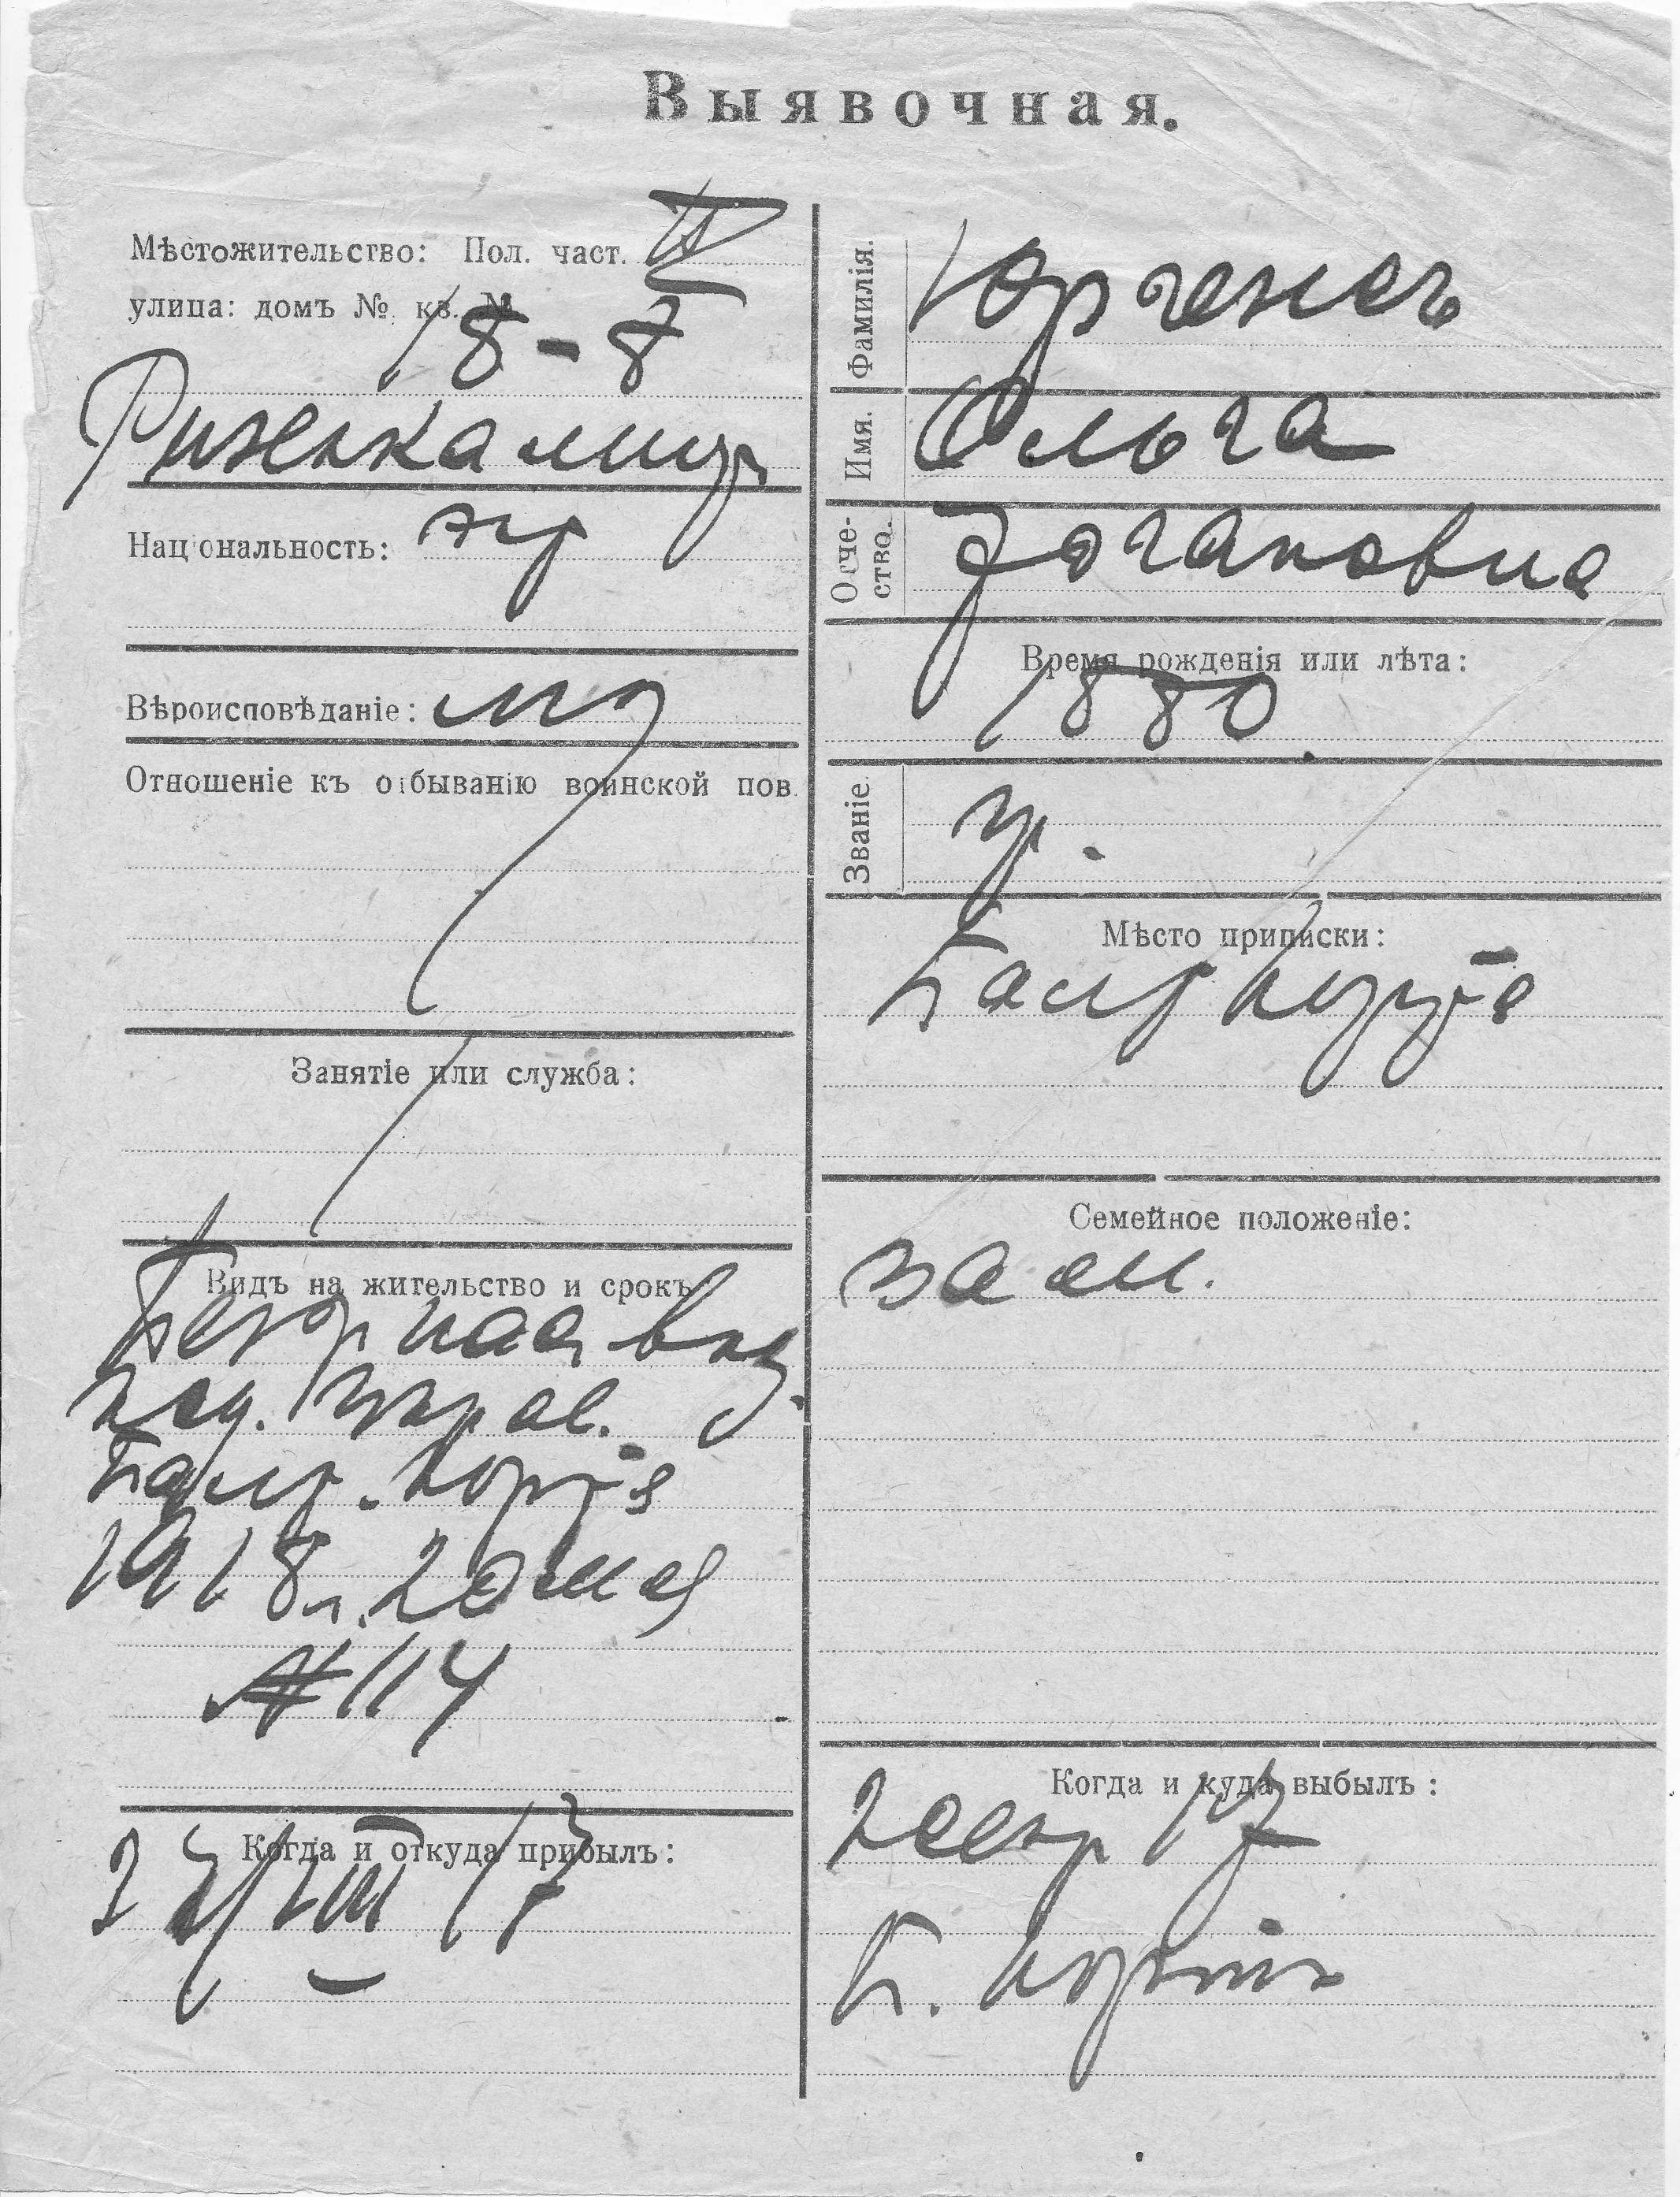 Выявочная.
Мѣстожительство: Пол. част. II
улица: домъ № кв. №
18-8
Національность:
Вѣроисповѣданіе:
Отношеніе къ отбыванію воинской пов.
Занятіе или служба:
Видъ на жительство и срокъ
Балт. Порта
1918 г. 20 мая
№ 114
Когда и откуда прибылъ:
17
Фамилія. Юргенсъ
Имя. Ольга
Отчество. Іогановна
Время рожденія или лѣта:
1880
Званіе.
Мѣсто приписки:
Балт Порта
Семейное положеніе:
зам.
Когда и куда выбылъ:
2 сент 17
Б. Портъ